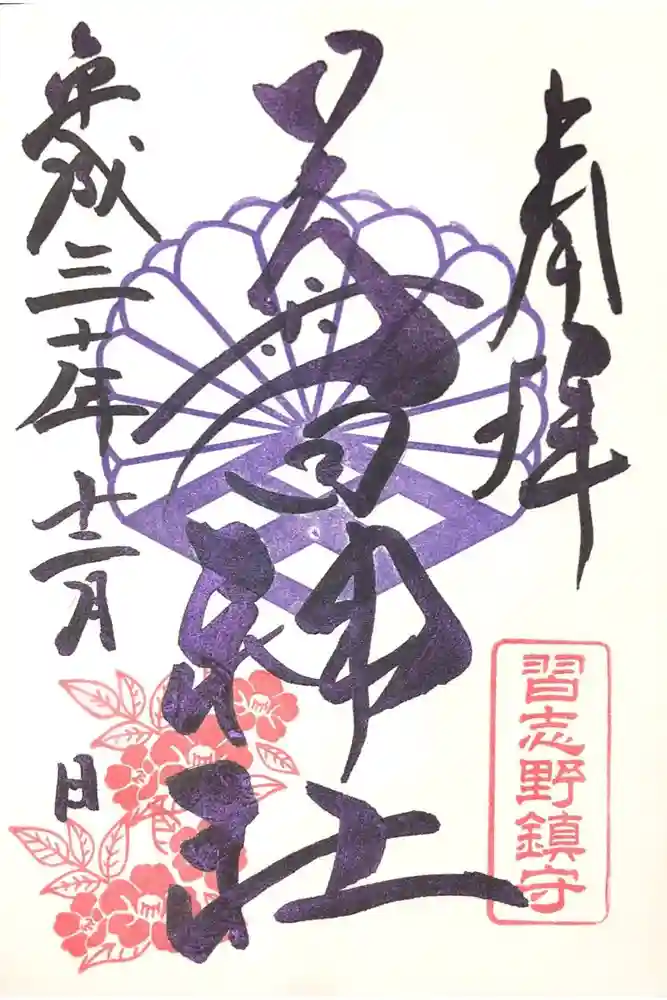 奉拝
習志野鎮守
神社
平成三十年十二月 日